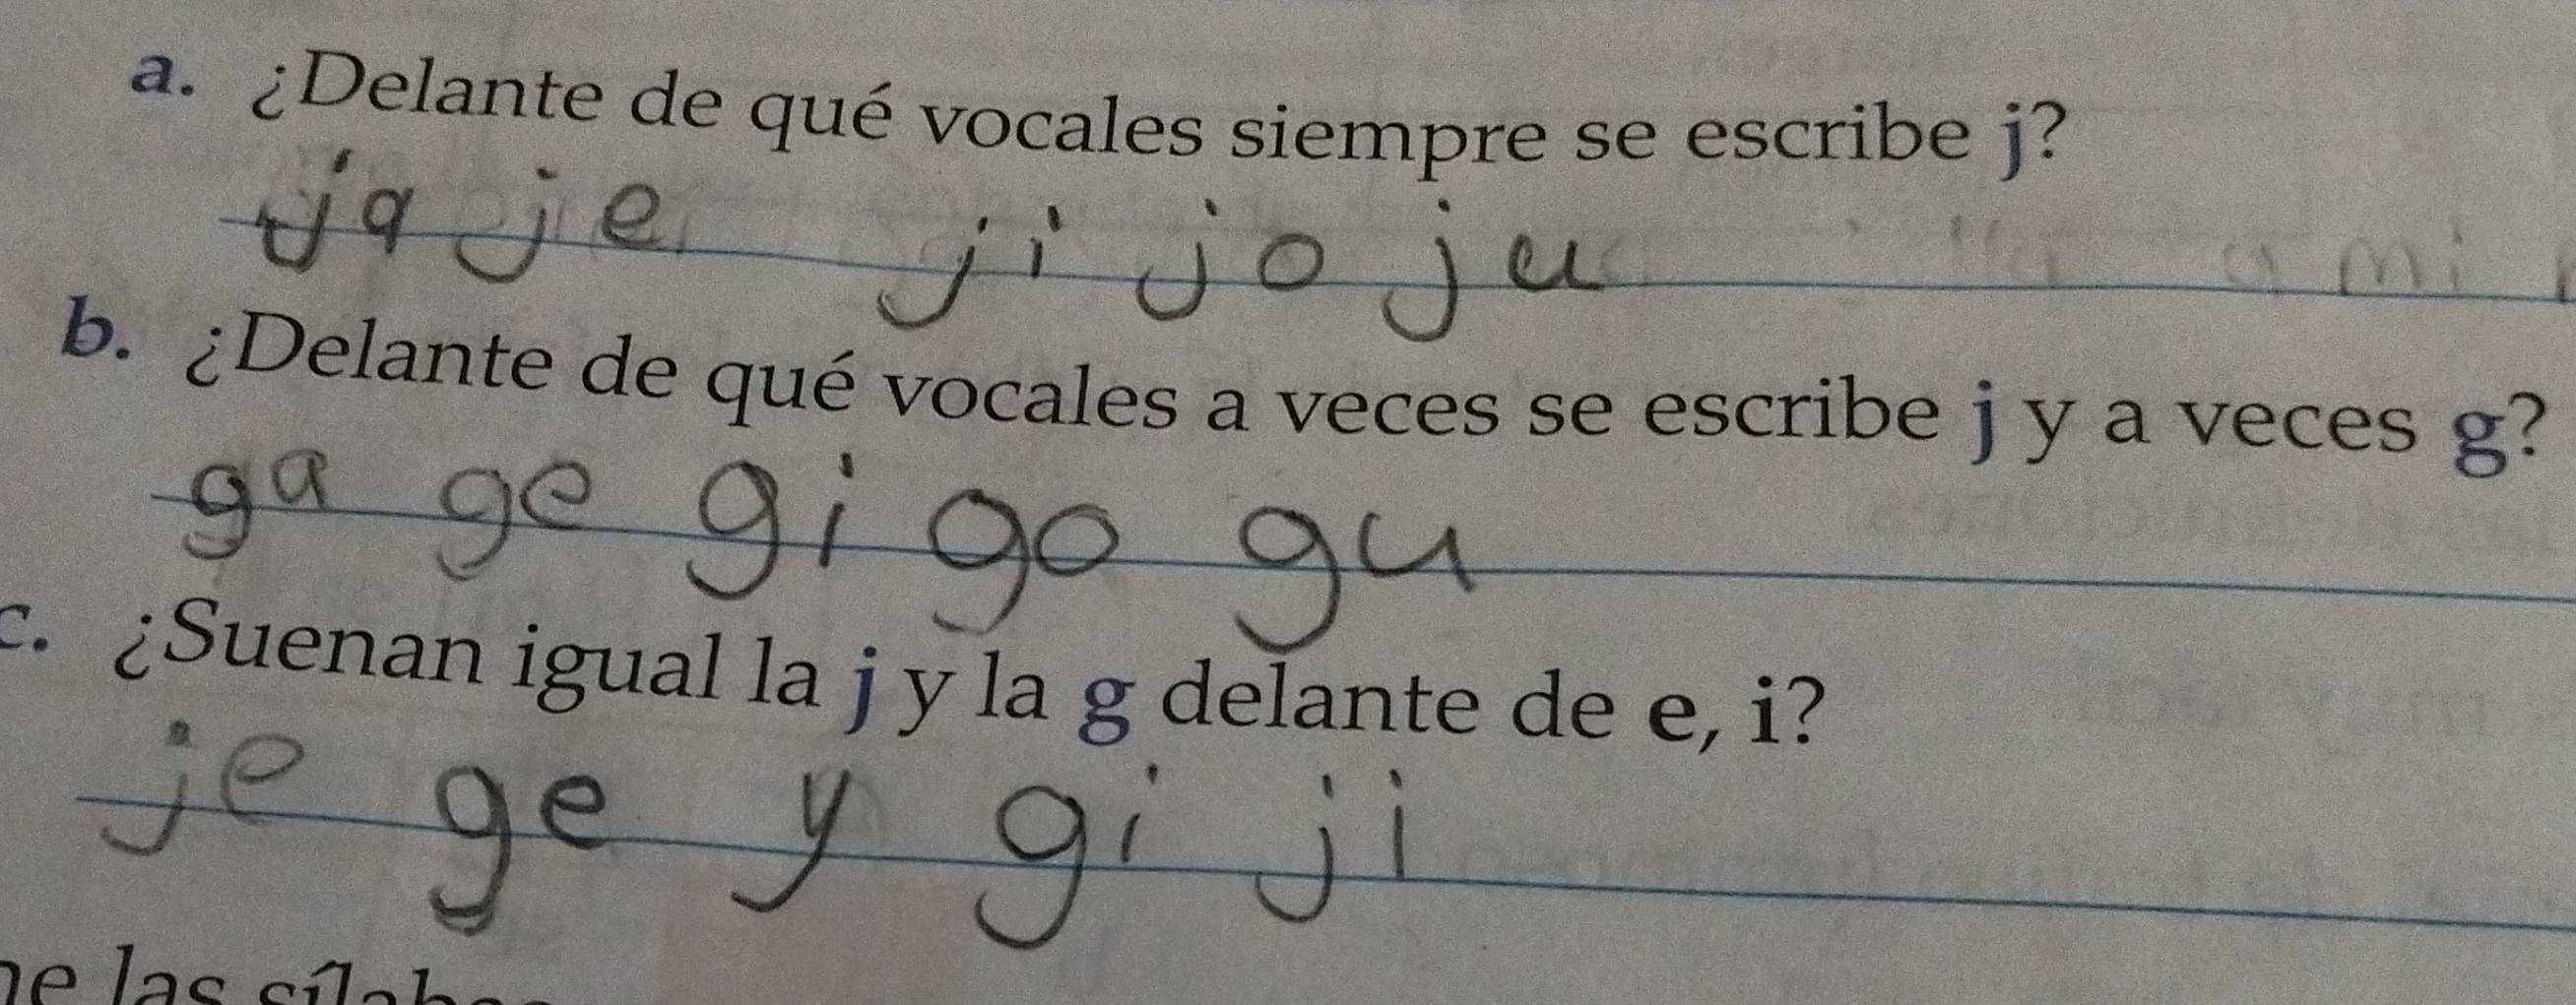 a. ¿Delante de qué vocales siempre se escribe j?
ja je ji jo ju
b. ¿Delante de qué vocales a veces se escribe j y a veces g?
ga ge gi go gu
c. ¿Suenan igual la j y la g delante de e, i?
je ge y gi ji
las